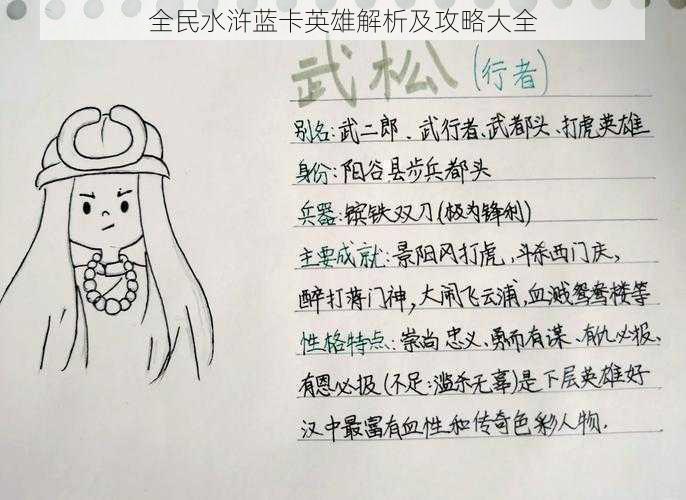 全民水浒蓝卡英雄解析及攻略大全
武松(行者)
别名:武二郎、武行者、武都头、打虎英雄
身份:阳谷县步兵都头
兵器:镔铁双刀(极为锋利)
主要成就:景阳冈打虎,斗杀西门庆,
醉打蒋门神,大闹飞云浦,血溅鸳鸯楼等
性格特点:崇尚忠义、勇而有谋、有仇必报、
有恩必报(不足:滥杀无辜)是下层英雄好
汉中最富有血性和传奇色彩人物.